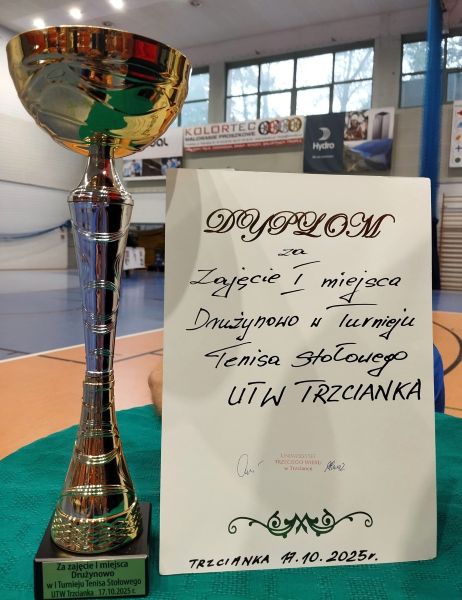 KOLORTEC
MALOWANIE PROSZKOWE
Hydro
DYPLOM
za
Zajęcie I miejsca
Drużynowo w Turnieju
Tenisa Stołowego
UTW TRZCIANKA
UNIWERSYTET
TRZECIEGO WIEKU
w Trzciance
TRZCIANKA 17.10.2025r.
Za zajęcie I miejsca
Drużynowo
w I Turnieju Tenisa Stołowego
UTW Trzcianka 17.10.2025 r.